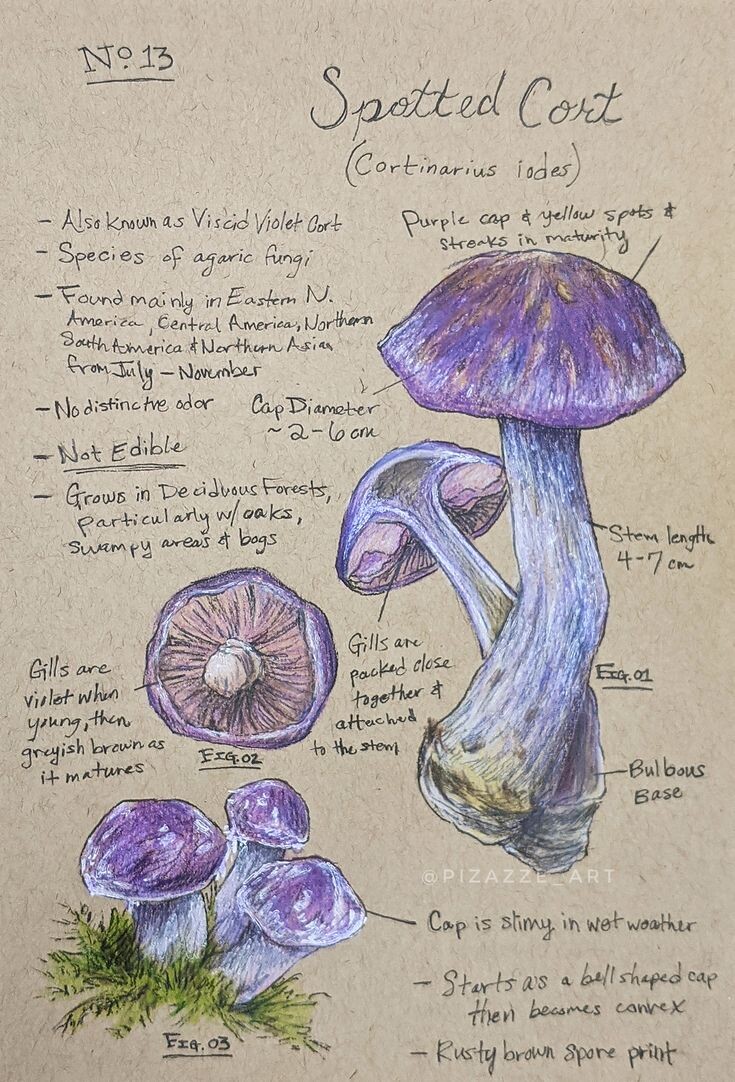 No 13
Spotted Cort
(Cortinarius iodes)
- Also known as Viscid Violet Cort
- Species of agaric fungi
- Found mainly in Eastern N.
America, Central America, Northern
South America & Northern Asia
from July - November
- No distinctive odor
- Not Edible
- Grows in Deciduous Forests,
particularly w/ oaks,
swampy areas & bogs
Purple cap & yellow spots &
streaks in maturity
Cap Diameter
~ 2-6 cm
Stem length
4-7 cm
FIG.01
Gills are
packed close
together &
attached
to the stem
Gills are
violet when
young, then
greyish brown as
it matures
FIG.02
Bulbous
Base
@PIZAZZE_ART
Cap is slimy in wet weather
- Starts as a bell shaped cap
then becomes convex
- Rusty brown spore print
FIG.03